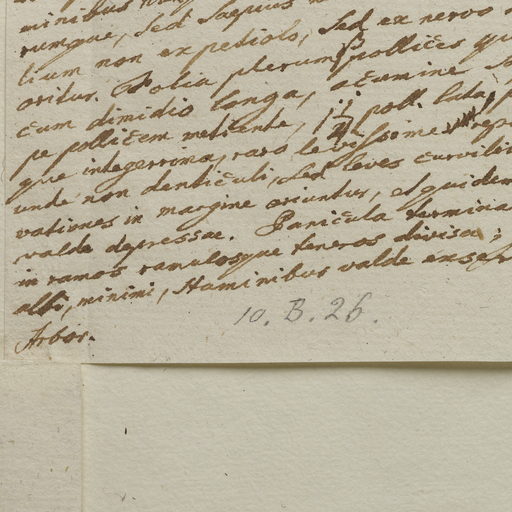 minibus
rumque, sed saepius
lium non expetiolo, sed ex nervo
oritur. Folia plerumq pollices
cum dimidio longa, acumine
pe pollicem metiente, 1 1/2 poll. lata,
que integerrima, raro levissime
unde non denticuli, sed leves curvili
vationes in margine oriuntur, et quidem
valde depressae. Panicula termina
in ramos ramulosque teneros divisa;
albi, minimi, staminibus valde exser
Arbor.
10. B. 26.